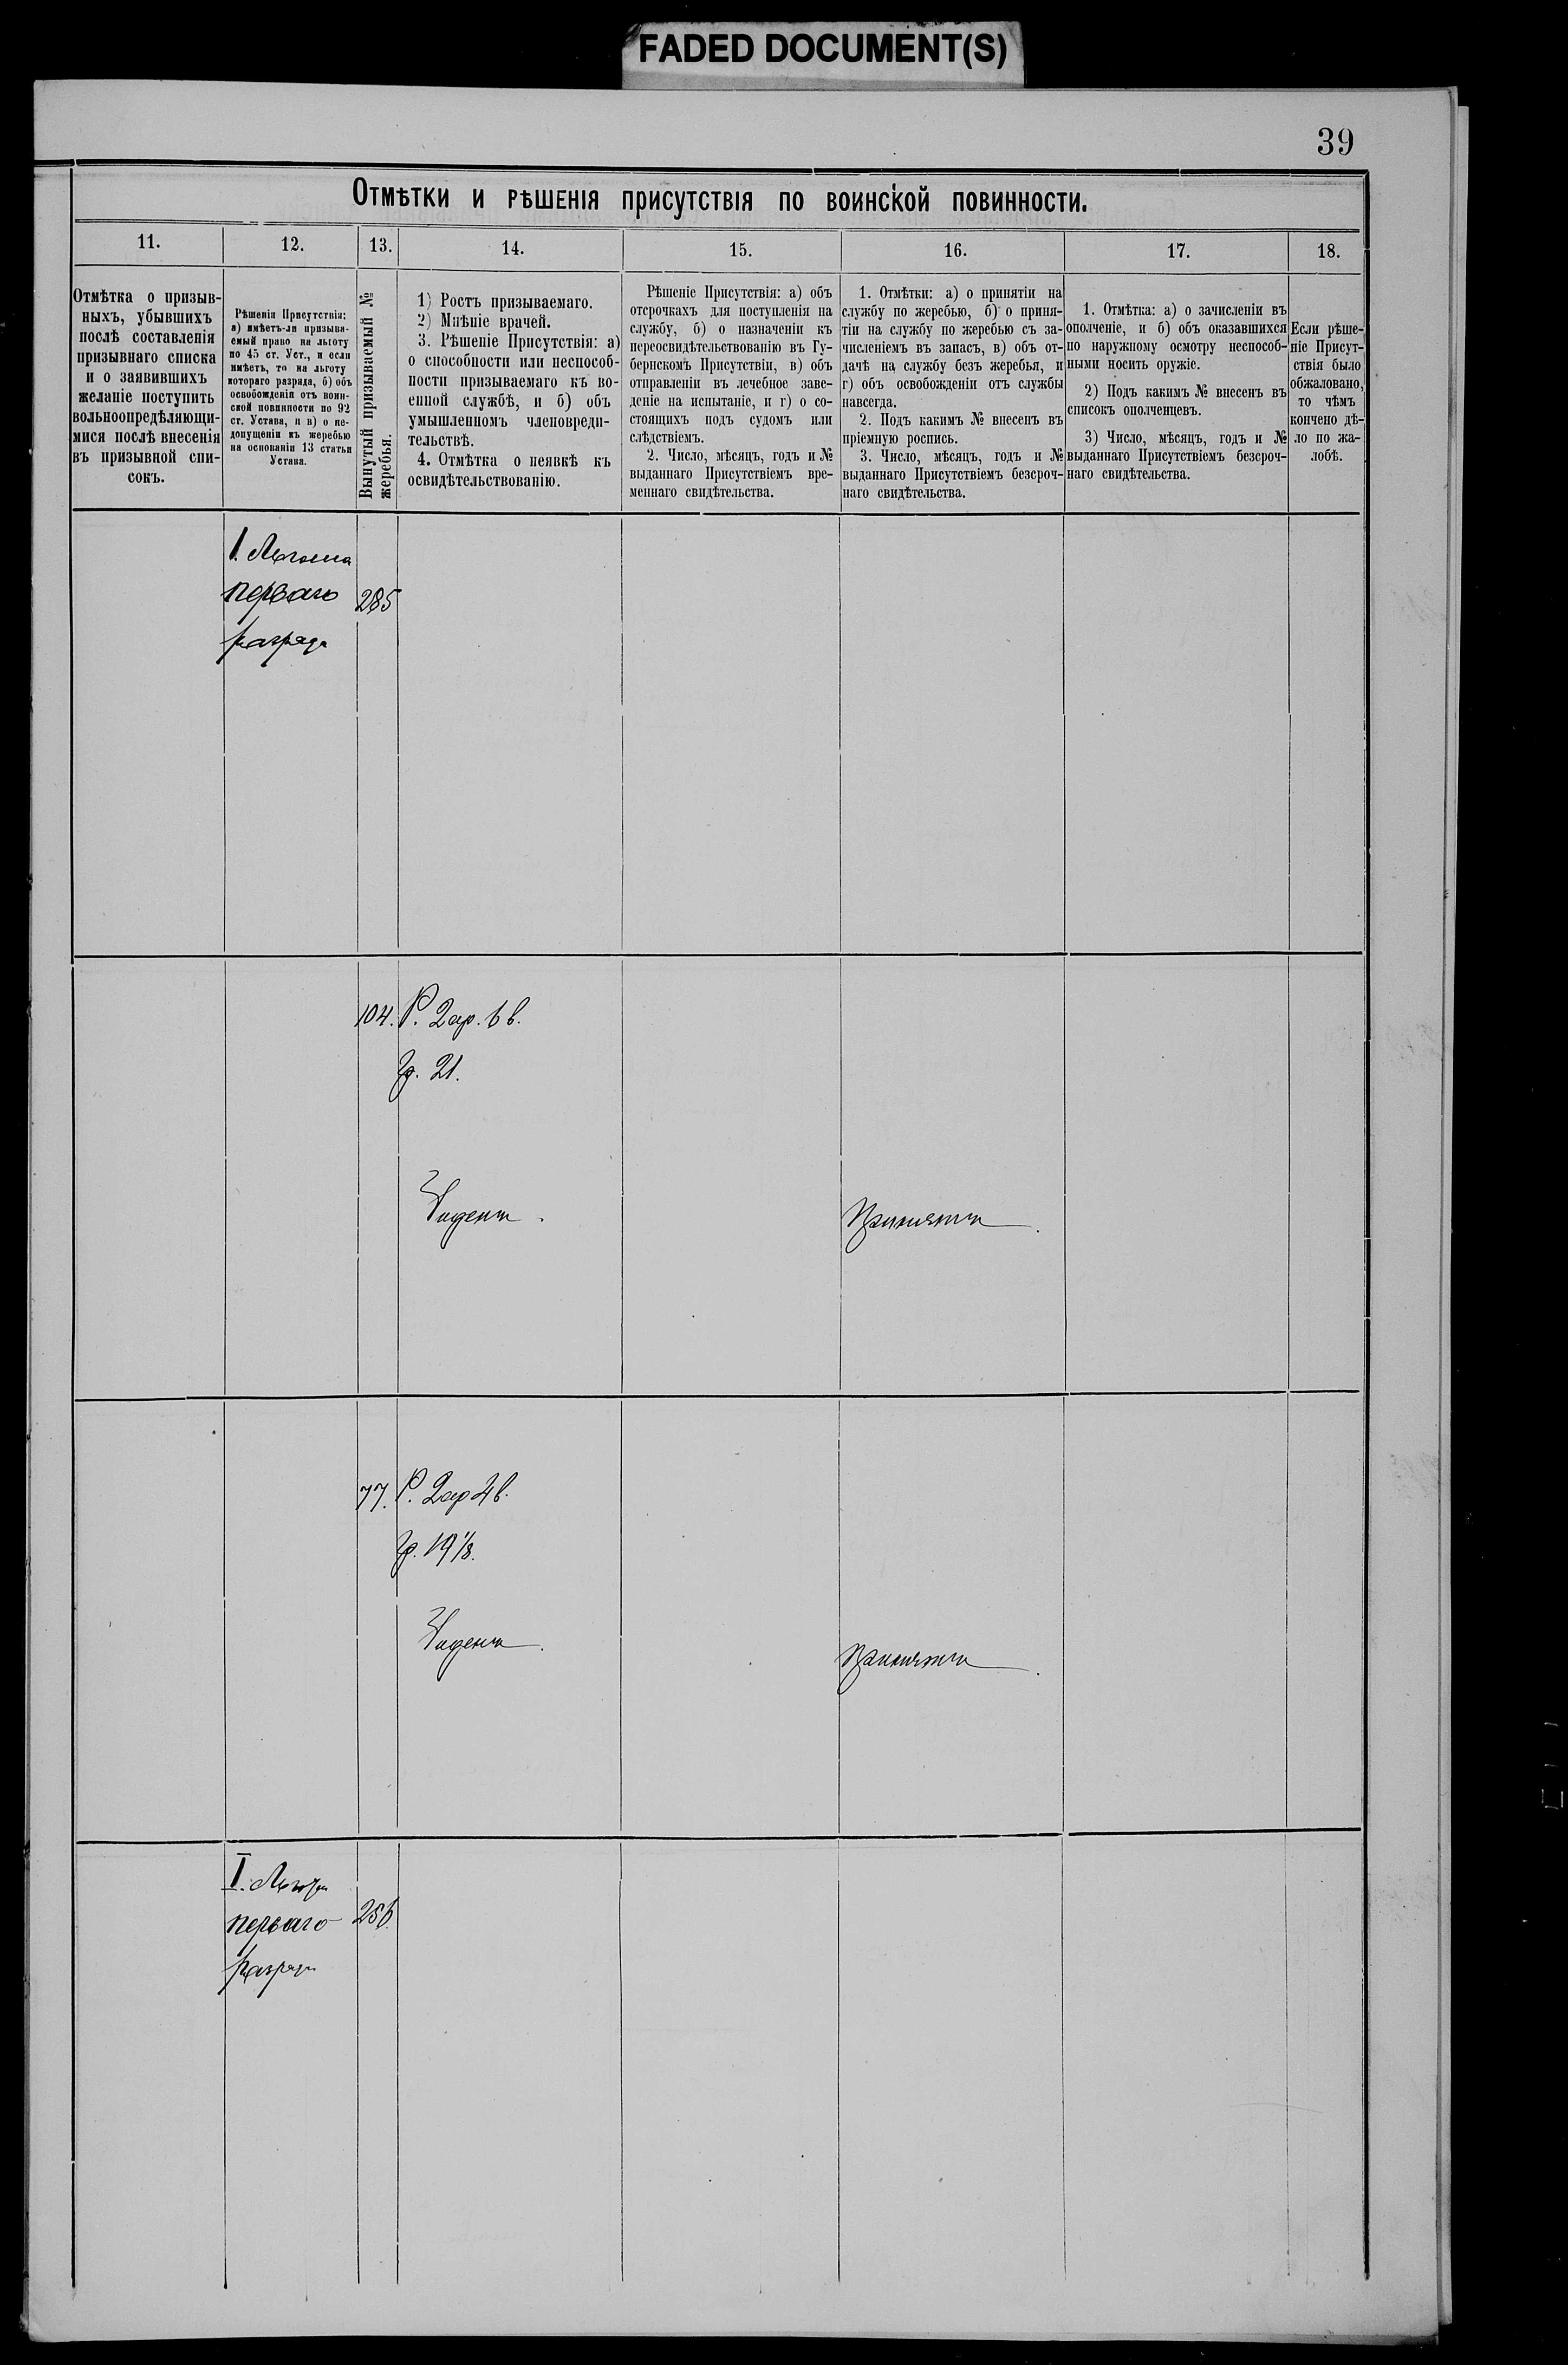 FADED DOCUMENT(S)
39
Отмѣтки и рѣшенія присутствія по воинской повинности.
11.
12.
13.
14.
15.
16.
17.
18.
Отмѣтка о призыв-
ныхъ, убывшихъ
послѣ составленія
призывнаго списка
и о заявившихъ
желаніе поступить
вольноопредѣляющи-
мися послѣ внесенія
въ призывной спи-
сокъ.
Рѣшенія Присутствія:
а) имѣетъ-ли призыва-
емый право на льготу
по 45 ст. Уст., и если
имѣетъ, то на льготу
котораго разряда, б) объ
освобожденіи отъ воин-
ской повинности по 92
ст. Устава, и в) о не-
допущеніи къ жеребью
на основаніи 13 статьи
Устава.
Вынутый призываемый №
жеребья.
1) Ростъ призываемаго.
2) Мнѣніе врачей.
3. Рѣшеніе Присутствія: а)
о способности или неспособ-
ности призываемаго къ во-
енной службѣ, и б) объ
умышленномъ членовреди-
тельствѣ.
4. Отмѣтка о неявкѣ къ
освидѣтельствованію.
Рѣшеніе Присутствія: а) объ
отсрочкахъ для поступленія на
службу, б) о назначеніи къ
переосвидѣтельствованію въ Гу-
бернскомъ Присутствіи, в) объ
отправленіи въ лечебное заве-
деніе на испытаніе, и г) о со-
стоящихъ подъ судомъ или
слѣдствіемъ.
2. Число, мѣсяцъ, годъ и №
выданнаго Присутствіемъ вре-
меннаго свидѣтельства.
1. Отмѣтки: а) о принятіи на
службу по жеребью, б) о приня-
тіи на службу по жеребью съ за-
численіемъ въ запасъ, в) объ от-
дачѣ на службу безъ жеребья, и
г) объ освобожденіи отъ службы
навсегда.
2. Подъ какимъ № внесенъ въ
пріемную роспись.
3. Число, мѣсяцъ, годъ и №
выданнаго Присутствіемъ безсроч-
наго свидѣтельства.
1. Отмѣтка: а) о зачисленіи въ
ополченіе, и б) объ оказавшихся
по наружному осмотру неспособ-
ными носить оружіе.
2) Подъ какимъ № внесенъ въ
списокъ ополченцевъ.
3) Число, мѣсяцъ, годъ и №
выданнаго Присутствіемъ безсроч-
наго свидѣтельства.
Если рѣше-
ніе Присут-
ствія было
обжаловано,
то чѣмъ
кончено дѣ-
ло по жа-
лобѣ.
I. Льгота
перваго
разряда
285
104.
Р. 2 ар. 6 в.
Гр. 21.
Годенъ.
Принятъ.
77.
Р. 2 ар 4 в.
Гр. 19 1/8.
Годенъ.
Принятъ.
I. Льгота
перваго
разряда
256